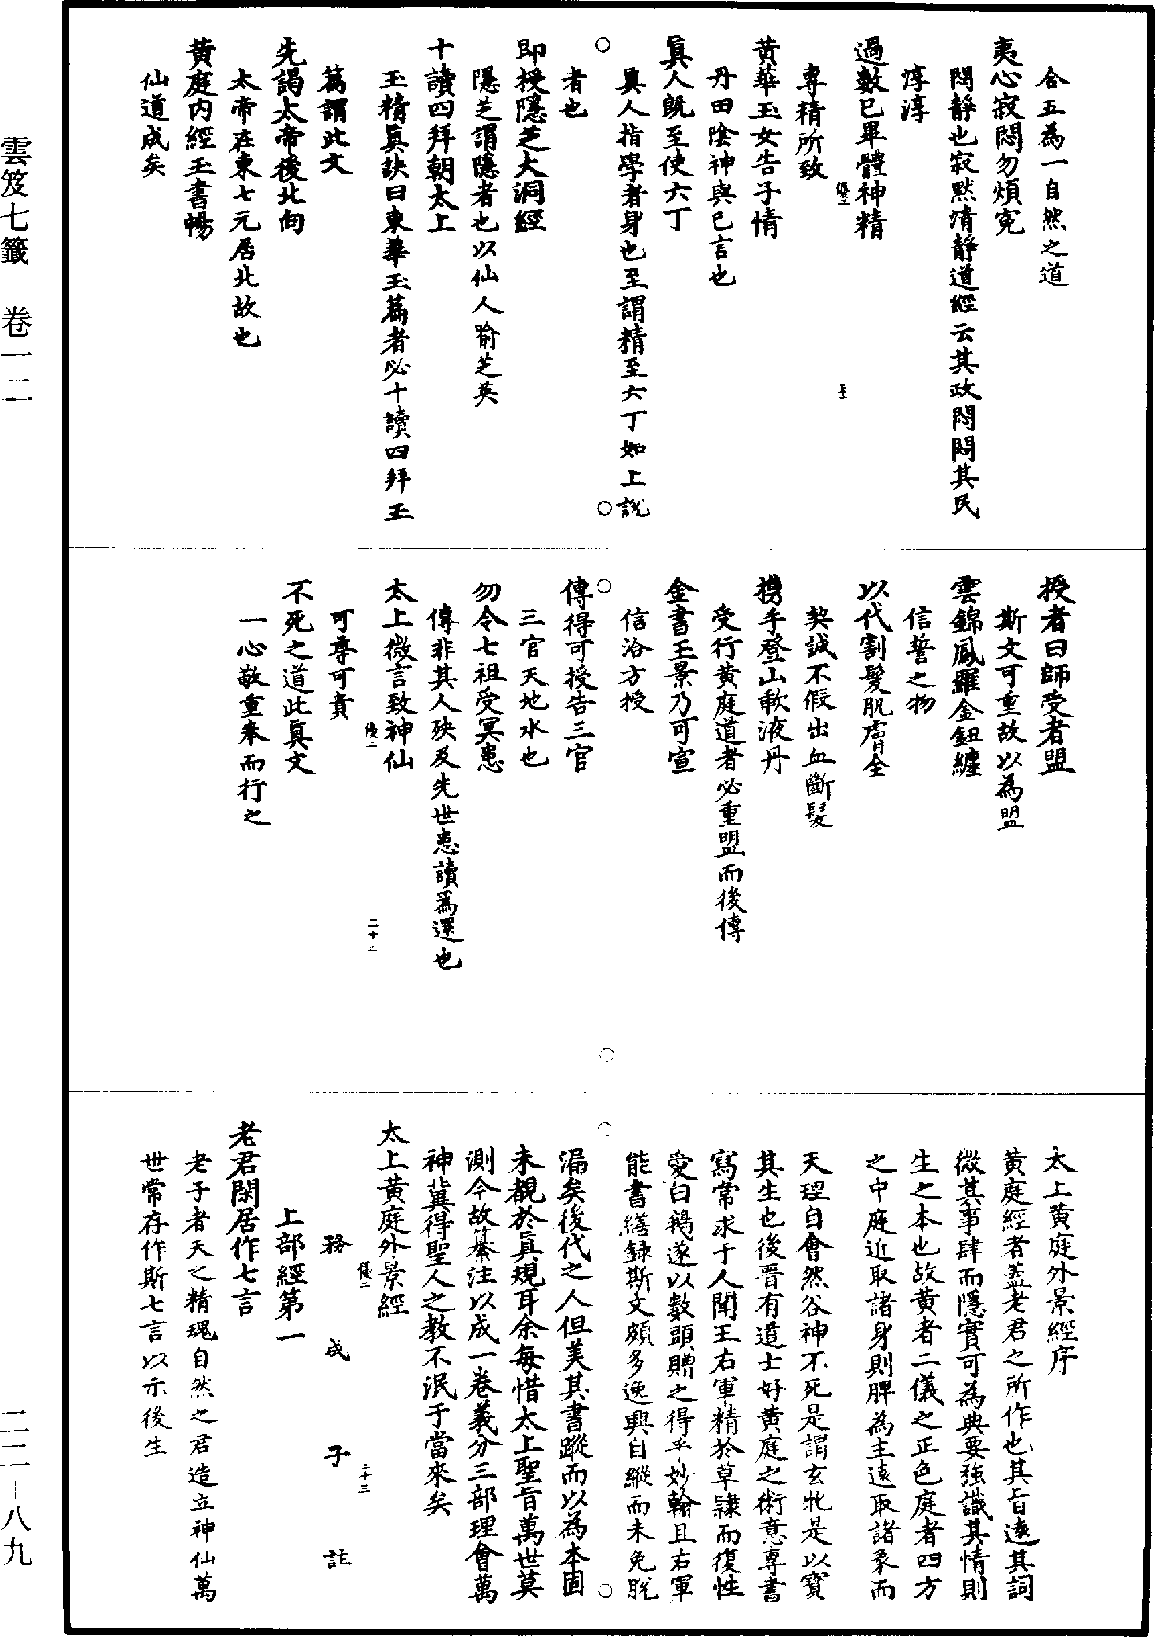 雲笈七籤　卷一二
二二―八九
合五為一自然之道
夷心寂悶勿煩寃
悶靜也寂黙清靜道經云其政悶悶其民
淳淳
過數已畢體神精
專精所致
黃華玉女告子情
丹田陰神與已言也
眞人既至使六丁
眞人指學者身也至謂精至六丁如上說
者也
即授隱芝大洞經
隱芝謂隱者也以仙人喻芝英
十讀四拜朝太上
玉精眞訣曰東華玉篇者必十讀四拜玉
篇謂此文
先謁太帝後北向
太帝在東七元居北故也
黃庭内經玉書暢
仙道成矣
授者曰師受者盟
斯文可重故以為盟
雲錦鳳羅金鈕纏
信誓之物
以代割髮肌膚全
契誠不假出血斷髮
攜手登山歃液丹
受行黃庭道者必重盟而後傳
金書玉景乃可宣
信洽方授
傳得可授告三官
三官天地水也
勿令七祖受冥患
傳非其人殃及先世患讀為還也
太上微言致神仙
可尊可貴
不死之道此眞文
一心敬重奉而行之
太上黃庭外景經序
黃庭經者蓋老君之所作也其旨遠其詞
微其事肆而隱實可為典要強識其情則
生之本也故黃者二儀之正色庭者四方
之中庭近取諸身則脾為主遠取諸象而
天理自會然谷神不死是謂玄牝是以寶
其生也後晋有道士好黃庭之術意專書
寫常求于人聞王右軍精於草隷而復性
愛白鵝遂以數頭贈之得乎妙翰且右軍
能書繕録斯文頗多逸興自縱而未免脫
漏矣後代之人但美其書蹤而以為本固
未覩於眞規耳余每惜太上聖旨萬世莫
測今故纂注以成一卷義分三部理會萬
神冀得聖人之教不泯于當來矣
太上黃庭外景經
二十三
務成子註
上部經第一
老君閑居作七言
老子者天之精魂自然之君造立神仙萬
世常存作斯七言以示後生